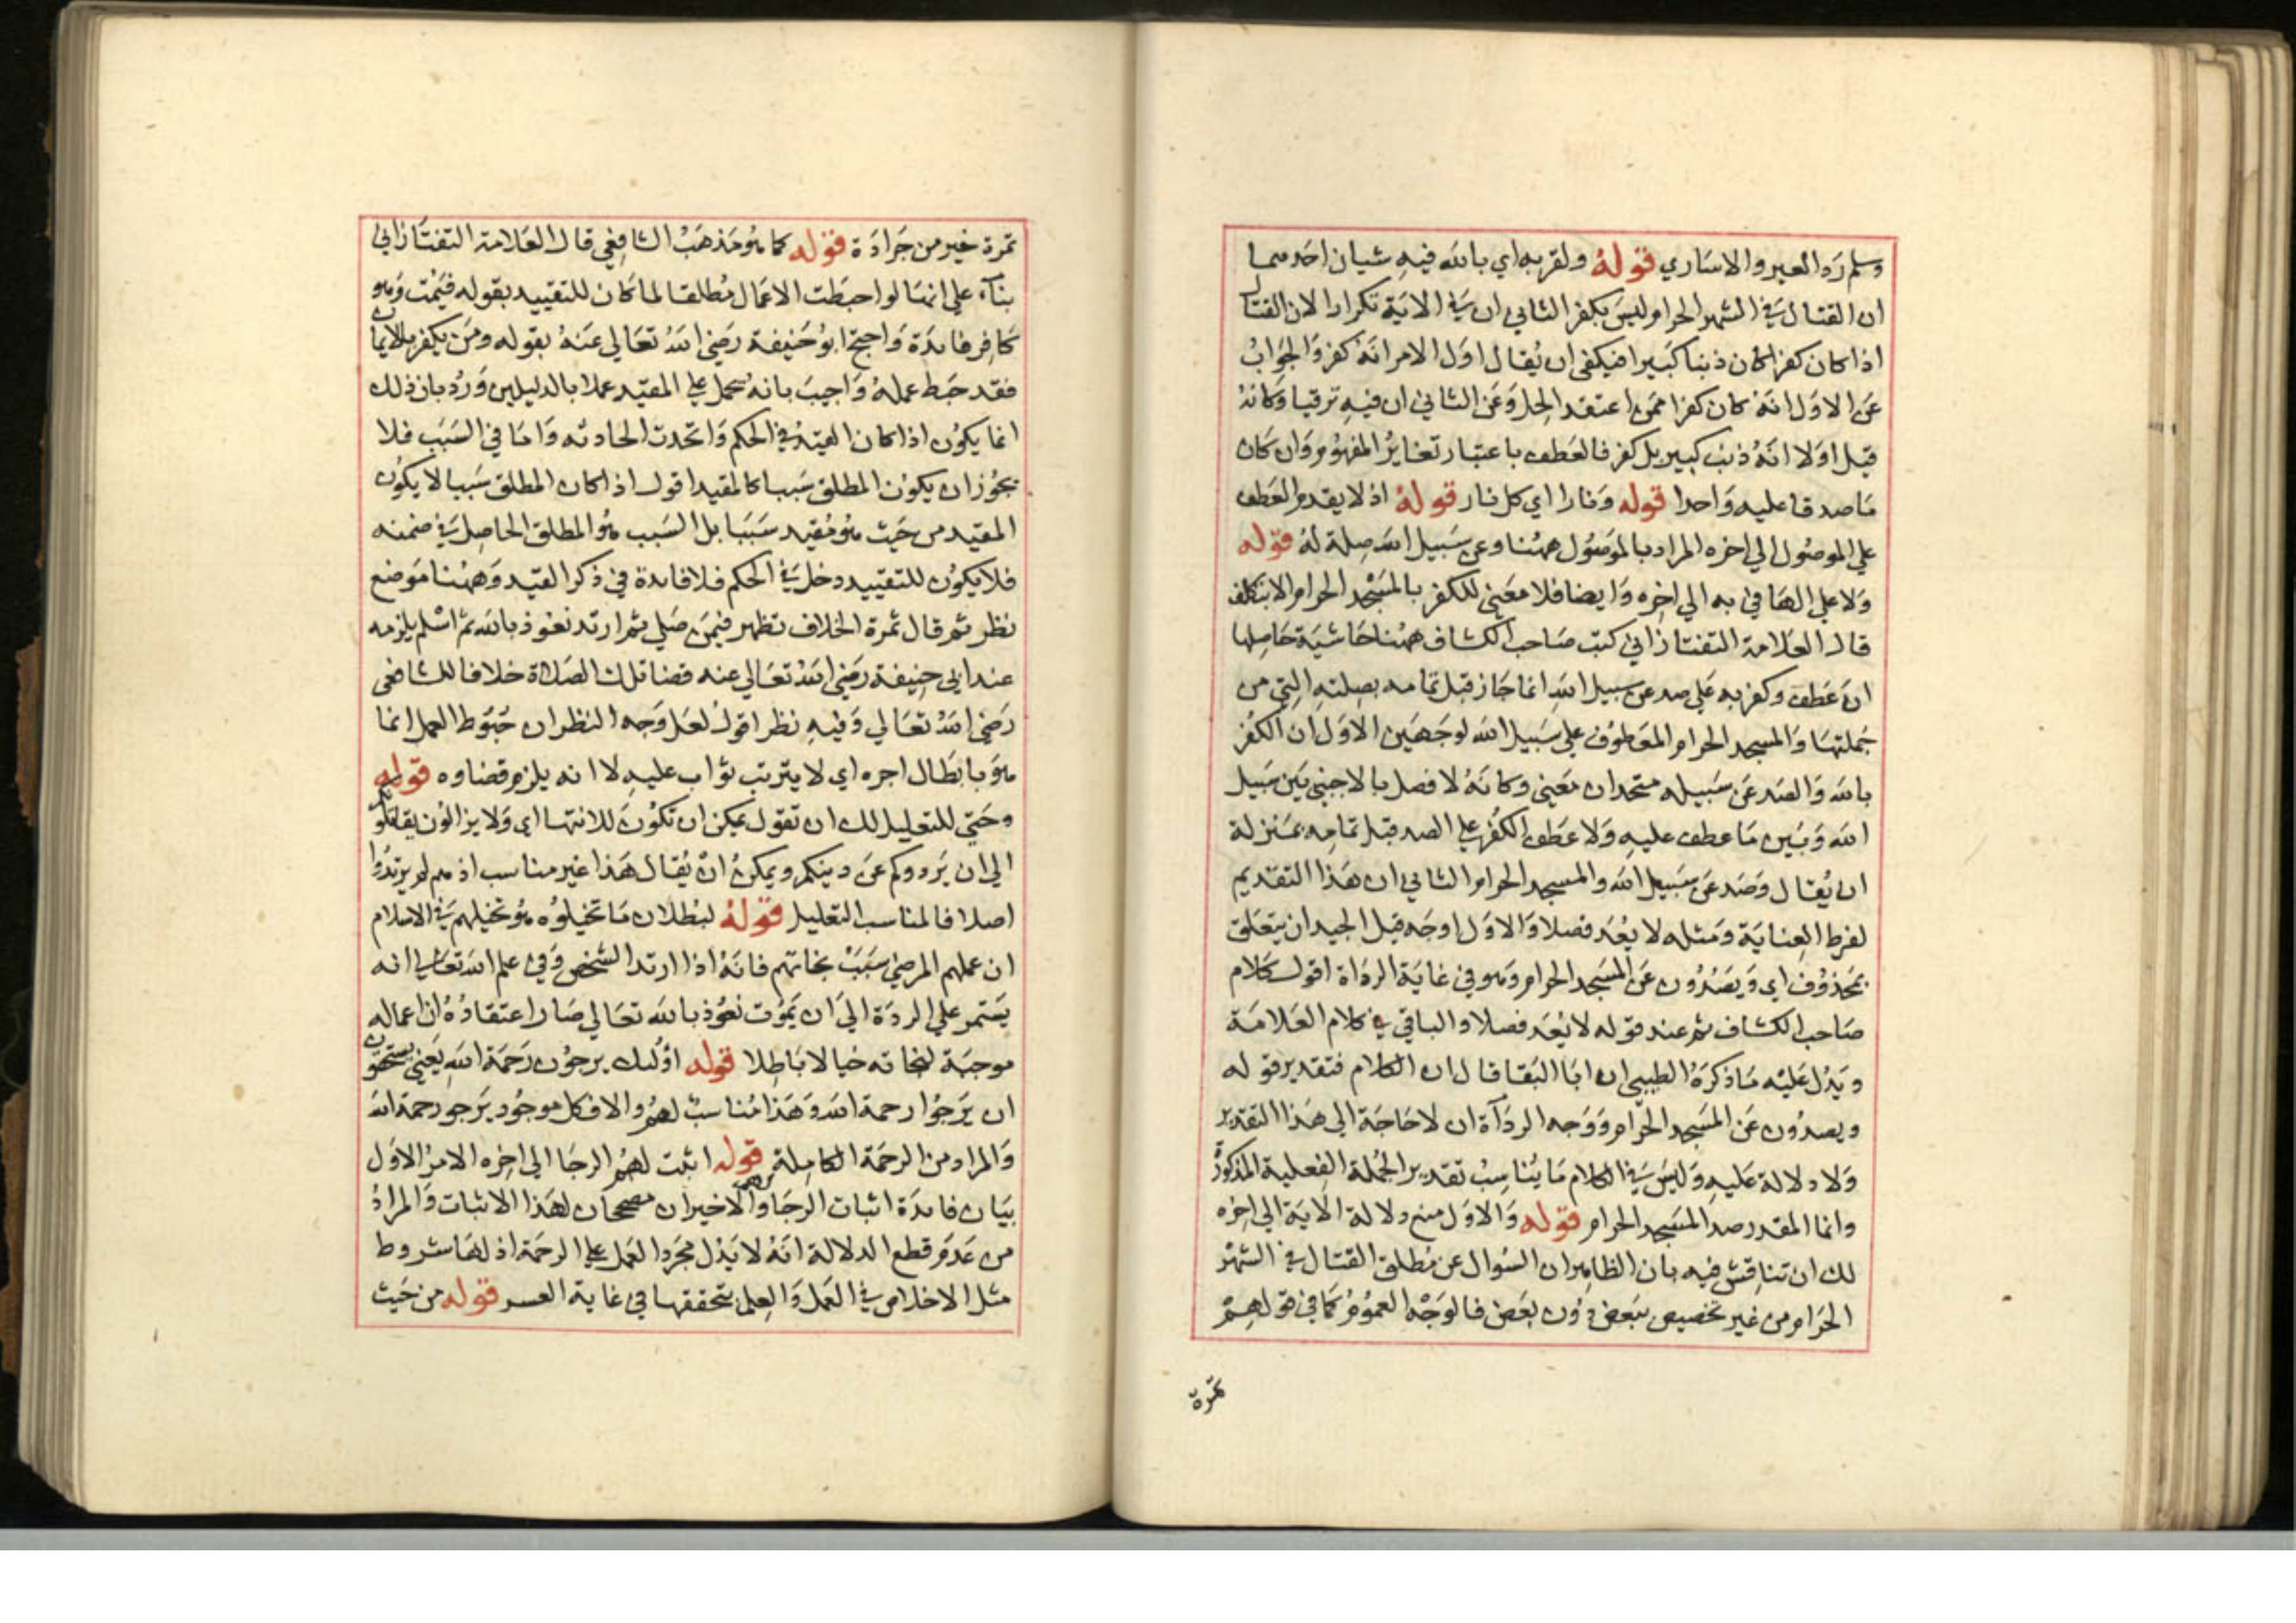 وسلم رد العير والاساري قوله ولقربه اي بالله فيه شيان احدهما
ان القتال في الشهر الحرام وليس بكفر الثاني ان في الاية تكرارا لان القتال
اذا كان كفرا كان ذنبا كبيرا فيكفي ان يقال اول الامر انه كفر والجواب
عن الاول انه كان كفرا ممن اعتقد الحل وعن الثاني ان فيه ترقيا وكانه
قيل اولا انه ذنب كبير بل كفر فالعطف باعتبار تغاير المفهوم وان كان
ما صدقا عليه واحدا قوله ونارا اي كل نار قوله اذ لا يقدم العطف
علي الموصول الي اخره المراد بالموصول ههنا وعن سبيل الله صلة له قوله
ولا علي الهاء في به الي اخره وايضا فلا معني للكفر بالمسجد الحرام الا بتكلف
قال العلامة التفتازاني كتب صاحب الكشاف ههنا حاشية حاصلها
ان عطف وكفر به علي صد عن سبيل الله انما جاز قبل تمامه بصلته التي من
جملتها والمسجد الحرام المعطوف علي سبيل الله لوجهين الاول ان الكفر
بالله والصد عن سبيله متحدان معني وكانه لا فصل بالاجنبي بين سبيل
الله وبين ما عطف عليه ولا عطف الكفر علي الصد قبل تمامه بمنزلة
ان يقال وصد عن سبيل الله والمسجد الحرام الثاني ان هذا التقديم
لفرط العناية ومثله لا يعد فصلا والاول اوجه قيل الجيد ان يتعلق
بمحذوف اي ويصدون عن المسجد الحرام وهو في غاية الرداة اقول كلام
صاحب الكشاف ثم عند قوله لا يعد فصلا والباقي في كلام العلامة
ويدل عليه ما ذكره الطيبي ان ابا البقا قال ان الكلام فتقدير قوله
ويصدون عن المسجد الحرام ووجه الرداة ان لا حاجة الي هذا التقدير
ولا دلالة عليه وليس في الكلام ما يناسب تقدير الجملة الفعلية المذكورة
وانما المقدر صد المسجد الحرام قوله والاول منع دلالة الاية الي اخره
لك ان تناقش فيه بان الظاهر ان السوال عن مطلق القتال في الشهر
الحرام من غير تخصيص ببعض دون بعض فالوجه العموم كما في قولهم
تمرة
تمرة خير من جرادة قوله كما هو مذهب الشافعي قال العلامة التفتازاني
بناء علي انها لو احبطت الاعمال مطلقا لما كان للتقييد بقوله فيمت وهو
كافر فايدة واحتج ابو حنيفة رضي الله تعالي عنه بقوله ومن يكفر بالايمان
فقد حبط عمله واجيب بانه يحمل علي المقيد عملا بالدليلين ورد بان ذلك
انما يكون اذا كان القيد في الحكم واتحدت الحادثه واما في السبب فلا
يجوز ان يكون المطلق سببا كالمقيد اقول اذا كان المطلق سببا لا يكون
المقيد من حيث هو مقيد سببا بل السبب هو المطلق الحاصل في ضمنه
فلا يكون للتقييد دخل في الحكم فلا فايدة في ذكر القيد وههنا موضع
نظر ثم قال ثمرة الخلاف تظهر فيمن صلي ثم ارتد نعوذ بالله ثم اسلم يلزمه
عند ابي حنيفة رضي الله تعالي عنه قضا تلك الصلاة خلافا للشافعي
رضي الله تعالي وفيه نظر اقول لعل وجه النظر ان حبوط العمل انما
هو بابطال اجره اي لا يترتب ثواب عليه لا انه يلزم قضاوه قوله
وحتي للتعليل لك ان تقول يمكن ان تكون للانتها اي ولا يزالون يقاتلونكم
الي ان يردوكم عن دينكم ويمكن ان يقال هذا غير مناسب اذ هم لم يرتدوا
اصلا فالمناسب التعليل قوله لبطلان ما تخيلوه هو تخيلهم في الاسلام
ان عملهم المرضي سبب نجاتهم فانه اذا ارتد الشخص وفي علم الله تعالي انه
يستمر علي الردة الي ان يموت نعوذ بالله تعالي صار اعتقاده ان اعماله
موجبة لنجاته خيالا باطلا قوله اوليك يرجون رحمة الله يعني يستحقون
ان يرجوا رحمة الله وهذا مناسب لهم والا فكل موجود يرجو رحمة الله
والمراد من الرحمة الكاملة قوله اثبت لهم الرجا الي اخره الامر الاول
بيان فايدة اثبات الرجا والاخيران مصححان لهذا الاثبات والمراد
من عدم قطع الدلالة انه لا يدل مجرد العمل علي الرحمة اذ لها شروط
مثل الاخلاص في العمل والعلم بتحققها في غاية العسر قوله من حيث